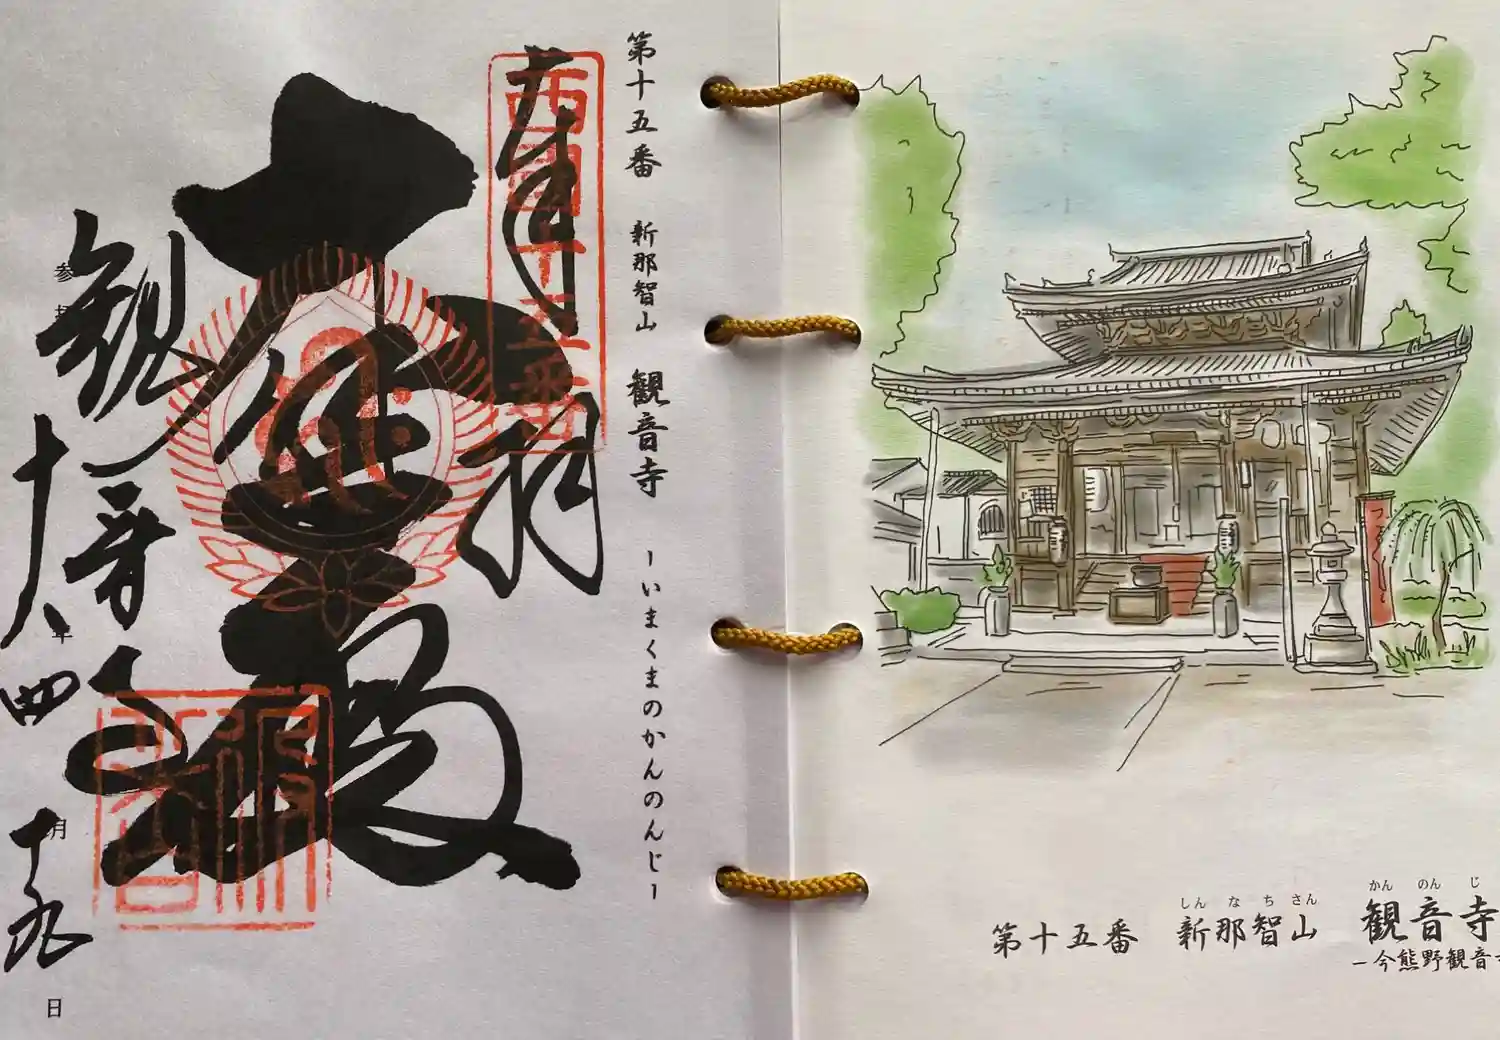 第十五番 新那智山 観音寺 ーいまくまのかんのんじー
奉拝
西國十五番
大悲殿
観音寺
年 四月 十九日
しん な ち さん かん のん じ
第十五番 新那智山 観音寺
ー今熊野観音